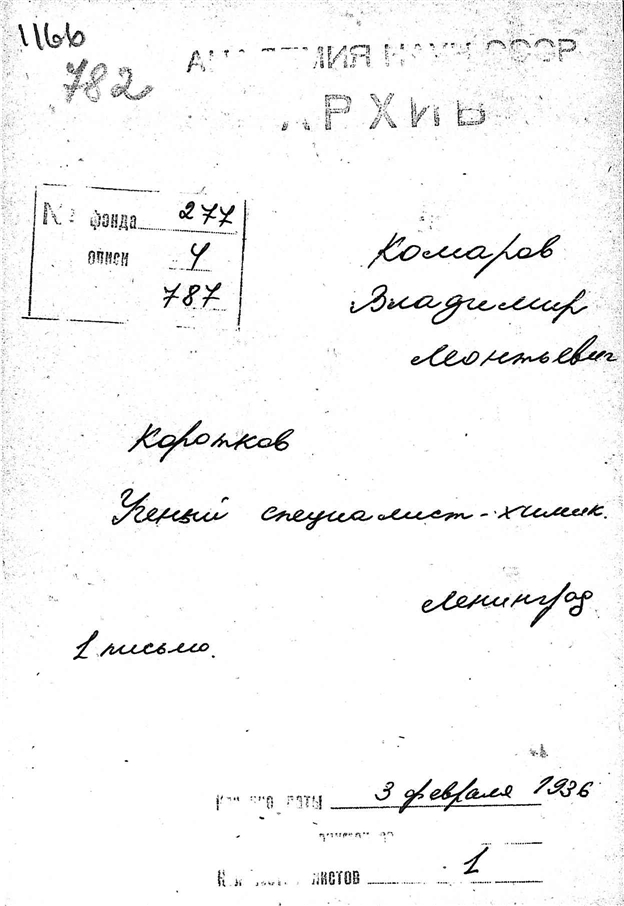 1166
782
АКАДЕМИЯ НАУК СССР
АРХИВ
№ фонда 277
описи 4
787
Комаров
Владимир
Леонтьевич
Коротков
Ученый специалист-химик.
Ленинград
1 письмо.
даты 3 февраля 1936
листов 1